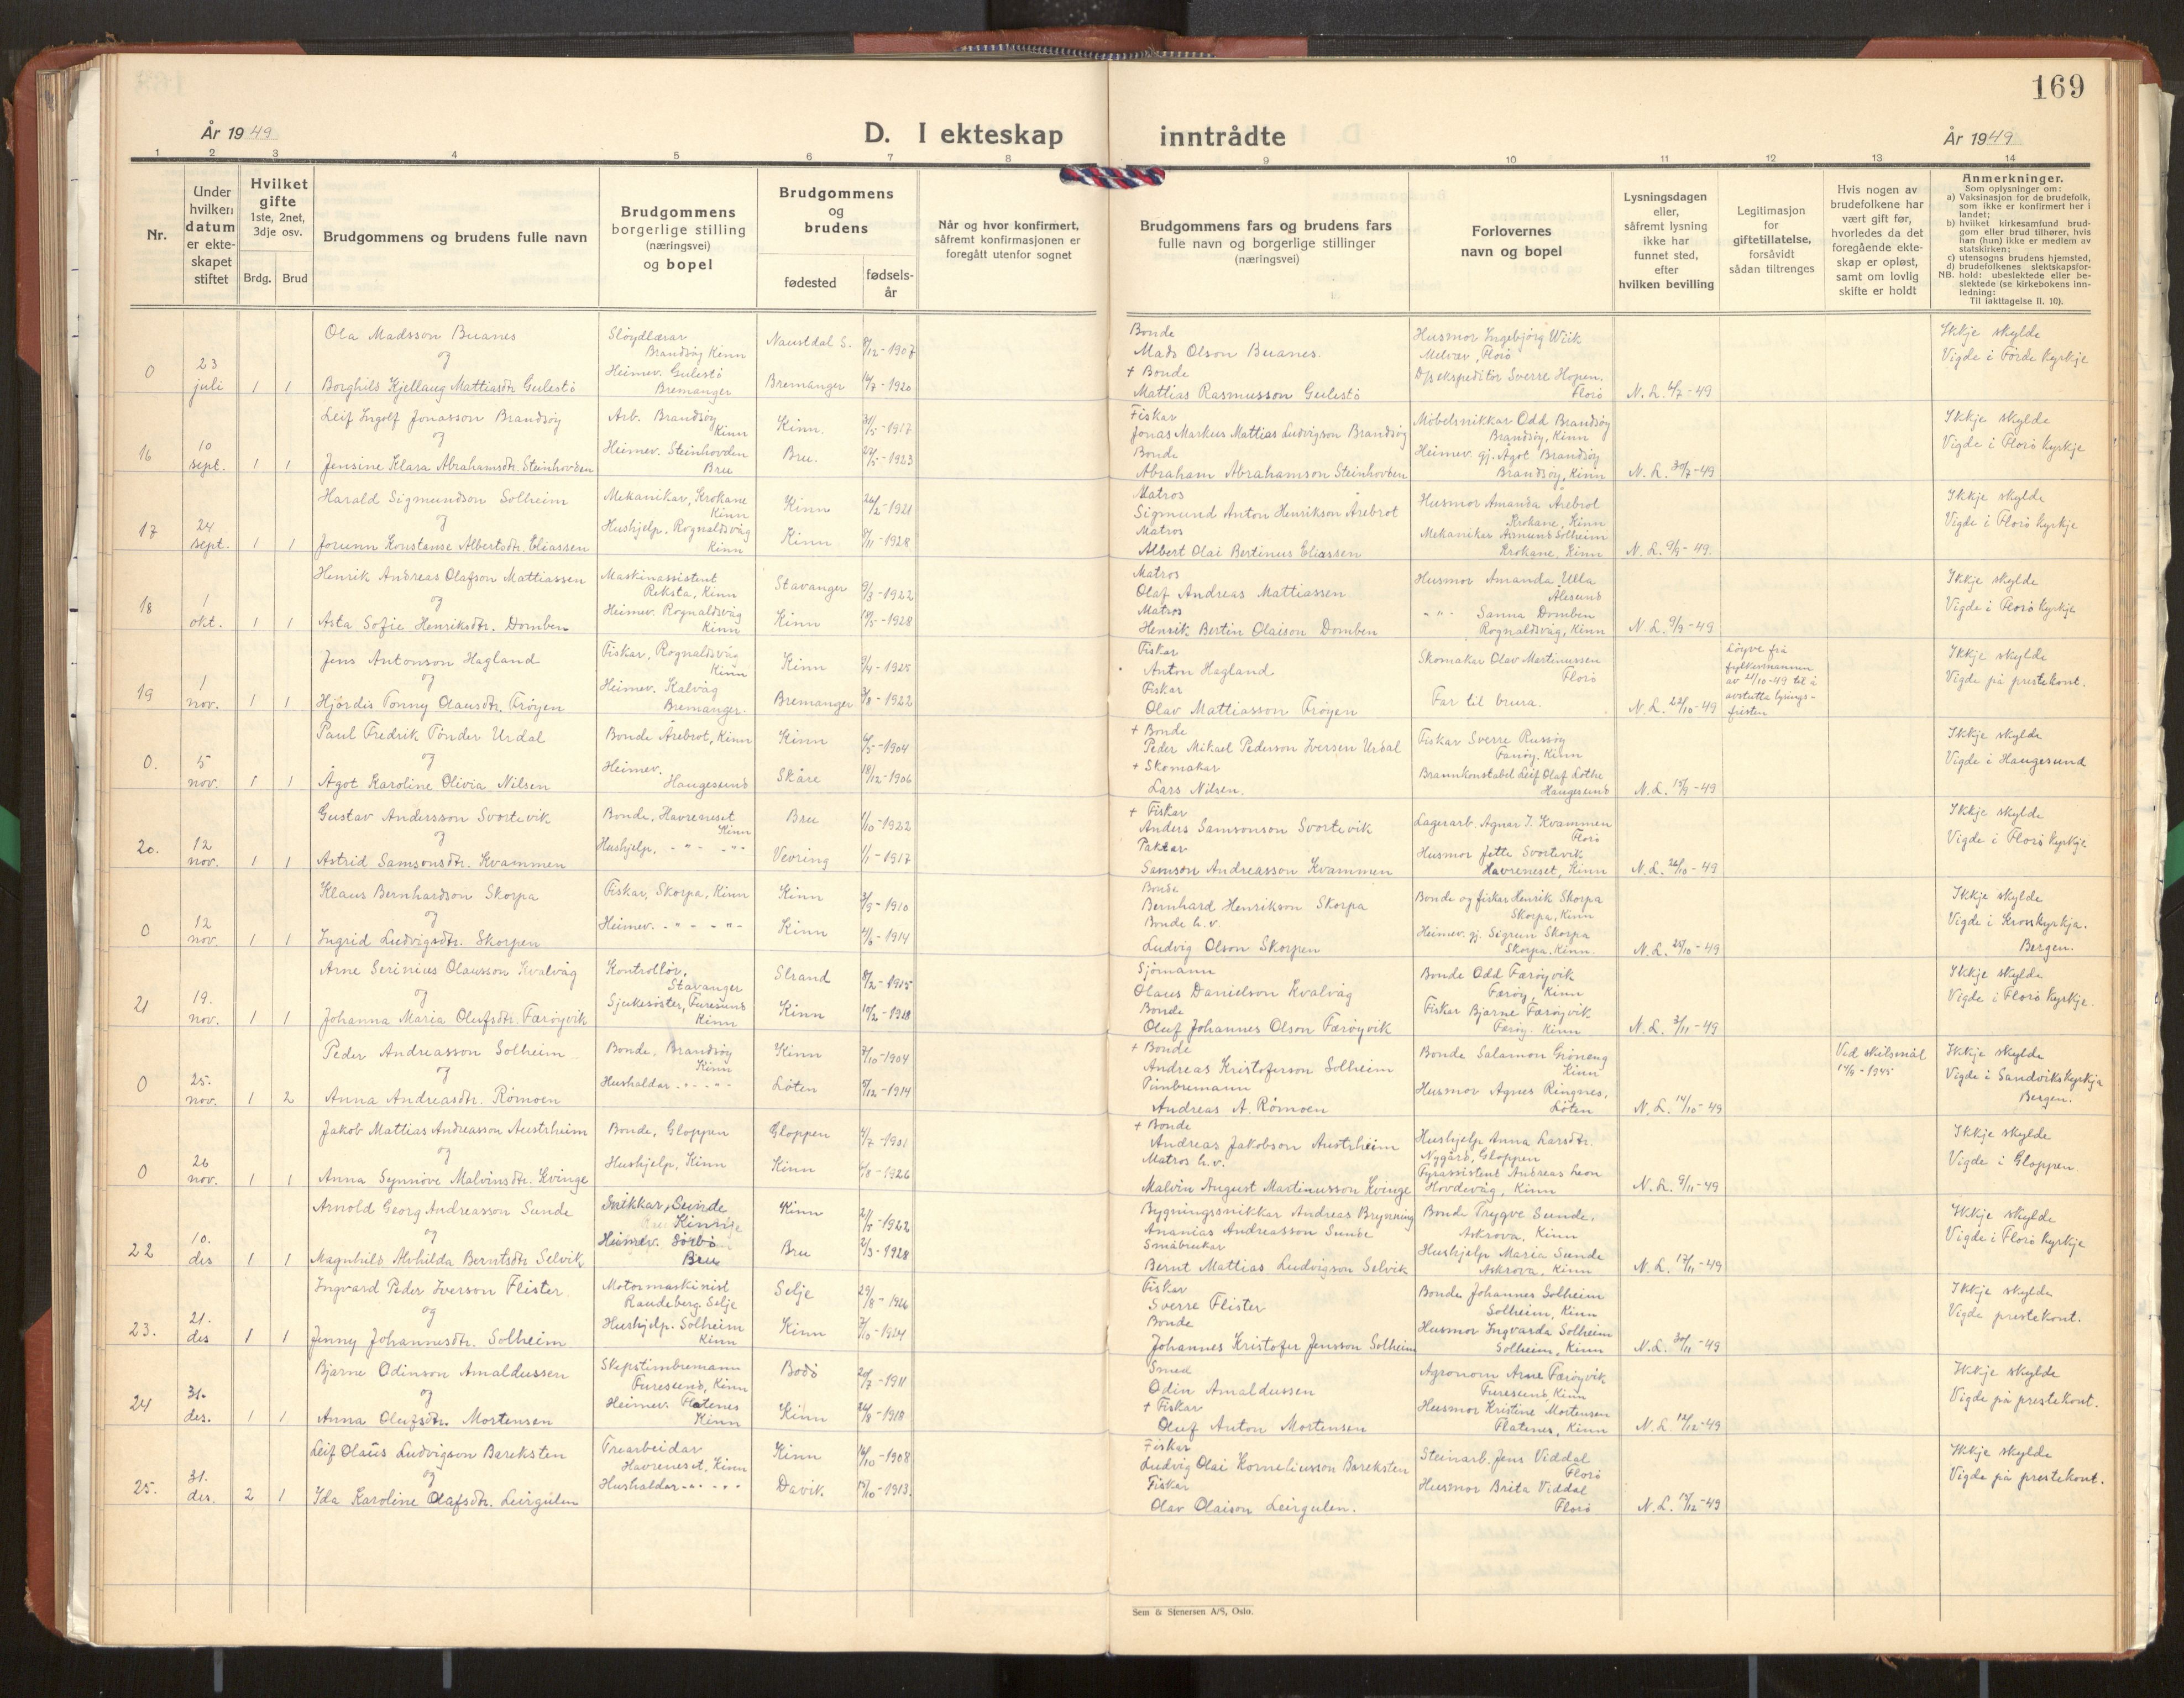 169
År 1949
D. I ekteskap inntrådte
År 1949
1 2 3 4 5 6 7 8 9 10 11 12 13 14
Nr.
Under
hvilken
datum
er ekte-
skapet
stiftet
Hvilket
gifte
1ste, 2net,
3dje osv.
Brdg. Brud
Brudgommens og brudens fulle navn
Brudgommens
borgerlige stilling
(næringsvei)
og bopel
Brudgommens
og
brudens
fødested
fødsels-
år
Når og hvor konfirmert,
såfremt konfirmasjonen er
foregått utenfor sognet
Brudgommens fars og brudens fars
fulle navn og borgerlige stillinger
(næringsvei)
Forlovernes
navn og bopel
Lysningsdagen
eller,
såfremt lysning
ikke har
funnet sted,
efter
hvilken bevilling
Legitimasjon
for
giftetillatelse,
forsåvidt
sådan tiltrenges
Hvis nogen av
brudefolkene har
vært gift før,
hvorledes da det
foregående ekte-
skap er opløst,
samt om lovlig
skifte er holdt
Anmerkninger.
Som oplysninger om:
a) Vaksinasjon for de brudefolk,
som ikke er konfirmert her i
landet;
b) hvilket kirkesamfund brud-
gom eller brud tilhører, hvis
han (hun) ikke er medlem av
statskirken;
c) utensogns brudens hjemsted,
d) brudefolkenes slektskapsfor-
NB. hold: ubeslektede eller be-
slektede (se kirkebokens inn-
ledning:
Til iakttagelse II. 10).
0 23 juli 1 1
Ola Madsson Buanes
og
Borghild Kjellaug Mattiasdtr. Gulestö
Slöydlærar
Brandsöy Kinn
Heimev. Gulestö
Bremanger
Naustdal S. 8/12-1907
Bremanger 14/7-1920
Bonde
Mads Olson Buanes.
+ Bonde
Mattias Rasmusson Gulestö
Husmor Ingebjörg Wiik
Melvær, Florö
D/s ekspeditör Sverre Hopen.
Florö
N. L. 6/7-49
Ikkje skylde
Vigde i Förde Kyrkje
16 10 sept. 1 1
Leif Ingolf Jonasson Brandsöy
og
Jensine Klara Abrahamsdtr. Steinhovden
Arb. Brandsöy
Kinn
Heimev. Steinhovden
Bru
Kinn. 31/5-1917
Bru. 27/5-1923
Fiskar
Jonas Markus Mattias Ludvigson Brandsöy
Bonde
Abraham Abrahamson Steinhovden
Möbelsnikkar Odd Brandsöy
Brandsöy, Kinn
Heimev. gj. Ågot Brandsöy
Brandsöy, Kinn
N. L. 30/7-49
Ikkje skylde
Vigde i Florö Kyrkje
17 24 sept. 1 1
Harald Sigmundson Solheim
og
Jorunn Konstanse Albertsdtr. Eliassen
Mekanikar, Krokane
Kinn
Hushjelp, Rognaldsvåg
Kinn
Kinn 26/2-1921
Kinn 8/11-1928
Matros
Sigmund Anton Henrikson Årebrot
Matros
Albert Olai Bertinus Eliassen
Husmor Amanda Årebrot
Krokane, Kinn
Mekanikar Asmund Solheim
Krokane, Kinn
N. L. 9/9-49.
Ikkje skylde
Vigde i Florö Kyrkje
18 1 okt. 1 1
Henrik Andreas Olafson Mattiassen
og
Asta Sofie Henriksdtr. Domben
Maskinassistent
Reksta, Kinn
Heimev. Rognaldsvåg
Kinn
Stavanger 9/3-1922
Kinn 10/5-1928
Matros
Olaf Andreas Mattiassen
Matros
Henrik Bertin Olaison Domben
Husmor Amanda Ulla
Ålesund
" " Sanna Domben
Rognaldsvåg, Kinn
N. L. 9/9-49
Ikkje skylde
Vigde i Florö Kyrkje
19 1 nov. 1 1
Jens Antonson Hagland
og
Hjördis Tonny Olausdtr. Fröyen
Fiskar, Rognaldsvåg
Kinn
Heimev. Kalvåg
Bremanger.
Kinn 9/4-1925
Bremanger 3/8-1922
Fiskar
Anton Hagland
Fiskar
Olav Mattiasson Fröyen
Skomakar Olav Martinussen
Florö
Far til brura.
N. L. 22/10-49
Löyve frå
fylkesmannen
av 21/10-49 til å
avstutta lysings-
fristen
Ikkje skylde
Vigde på prestekont.
0. 5 nov. 1 1
Paul Fredrik Tönder Urdal
og
Ågot Karoline Olivia Nilsen
Bonde Årebrot, Kinn
Heimev.
Haugesund
Kinn 6/5-1904
Skåre 18/12-1906
+ Bonde
Peder Mikael Pederson Iversen Urdal
+ Skomakar
Lars Nilsen.
Fiskar Sverre Russöy
Fanöy, Kinn
Brannkonstabel Leif Olaf Lothe
Haugesund
N. L. 15/9-49
Ikkje skylde
Vigde i Haugesund
20. 12 nov. 1 1
Gustav Andersson Svortevik
og
Astrid Samsonsdtr. Kvammen
Bonde, Havreneset
Kinn
Hushjelp, - " - - " -
Bru 1/10-1922
Vevring 1/1-1917
+ Fiskar
Anders Samsonson Svortevik
Pakkar
Samson Andreasson Kvammen
Lagerarb. Agnar J. Kvammen
Florö
Husmor Jette Svortevik
Havreneset, Kinn
N. L. 26/10-49
Ikkje skylde
Vigde i Florö Kyrkje
0 12 nov. 1 1
Klaus Bernhardson Skorpa
og
Ingrid Ludvigsdtr. Skorpen
Fiskar, Skorpa, Kinn
Heimev. - " - - " -
Kinn 3/9-1910
Kinn 4/6-1914
Bonde
Bernhard Henrikson Skorpa
Bonde h.v.
Ludvig Olson Skorpen
Bonde og fiskar Henrik Skorpa
Skorpa, Kinn
Heimev. gj. Sigrun Skorpa
Skorpa, Kinn.
N. L. 28/10-49
Ikkje skylde
Vigde i Krosskyrkja.
Bergen.
21 19. nov. 1 1
Arne Serinius Olausson Kvalvåg
og
Johanna Maria Olufsdtr. Færöyvik
Kontrollör,
Stavanger
Sjukesöster, Furesund
Kinn
Strand 8/2-1915
Kinn 10/2-1918
Sjömann
Olaus Danielson Kvalvåg
Bonde
Oluf Johannes Olson Færöyvik
Bonde Odd Færöyvik
Færöy, Kinn
Fiskar Bjarne Færöyvik
Færöy. Kinn
N. L. 3/11-49
Ikkje skylde
Vigde i Florö Kyrkje.
0 25. nov. 1 2
Peder Andreasson Solheim
og
Anna Andreasdtr. Römoen
Bonde, Brandsöy
Kinn
Hushaldar - " - - " -
Kinn 7/10-1904
Löten 5/12-1914
+ Bonde
Andreas Kristoferson Solheim
Tömbremann
Andreas A. Römoen
Bonde Salamon Gröneng
Kinn
Husmor Agnes Ringnes,
Löten
N. L. 14/10-49
Ved skilsmål
14/9-1945
Ikkje skylde
Vigde i Sandvikskyrkja
Bergen.
0 26 nov. 1 1
Jakob Mattias Andreasson Austrheim
og
Anna Synnöve Malvinsdtr. Kvinge
Bonde, Gloppen
Hushjelp, Kinn
Gloppen 4/7-1901
Kinn 6/8-1926
+ Bonde
Andreas Jakobson Austrheim
Matros h.v.
Malvin August Martinusson Kvinge
Hushjelp Anna Larsdtr.
Nygård, Gloppen
Fyrassistent Andreas Leon
Hovdevåg, Kinn
N. L. 9/11-49
Ikkje skylde
Vigde i Gloppen
22 10. des 1 1
Arnold Georg Andreasson Sunde
og
Magnhild Alvhilda Berntsdtr Selvik
Snikkar, Sunde
Kinn
Heimev. Sörbö
Bru
Kinn 21/5-1922
Bru 2/3-1928
Bygningssnikkar Andreas Brynning
Ananias Andreasson Sunde
Småbrukar
Bernt Mattias Ludvigson Selvik
Bonde Trygve Sunde,
Askrova, Kinn
Hushjelp Maria Sunde
Askrova, Kinn
N. L. 17/11-49
Ikkje skylde
Vigde i Florö Kyrkje
23. 21. des 1 1
Ingvard Peder Iverson Flister
og
Jenny Johannesdtr. Solheim
Motormaskinist
Raudeberg. Selje
Hushjelp. Solheim
Kinn
Selje 29/8-1926
Kinn 7/10-1924
Fiskar
Sverre Flister
Bonde
Johannes Kristofer Jensson Solheim
Bonde Johannes Solheim
Solheim, Kinn
Husmor Ingvarda Solheim
Solheim, Kinn
N.L. 30/11-49
Ikkje skylde
Vigde prestekont.
24 31. des. 1 1
Bjarne Odinson Amaldussen
og
Anna Olufsdtr. Mortensen
Skipstimbremann
Furesund, Kinn
Heimev. Flatenes
Kinn
Bodö 20/7-1911
Kinn 26/8-1918
Smed
Odin Amaldussen
+ Fiskar
Oluf Anton Mortensen
Agronom Arne Færöyvik
Furesund Kinn
Husmor Kristine Mortensen
Flatenes, Kinn
N. L. 12/12-49
Ikkje skylde
Vigde på prestekont.
25. 31. des. 2 1
Leif Olaus Ludvigson Bareksten
og
Ida Karoline Olafsdtr. Leirgulen
Trearbeidar
Havreneset, Kinn
Hushaldar - " - " -
Kinn 16/10-1908
Davik. 15/10-1913.
Fiskar
Ludvig Olai Korneliusson Bareksten
Fiskar
Olav Olaison Leirgulen.
Steinarb. Jens Viddal
Florö
Husmor Brita Viddal
Florö
N. L. 15/12-49
Ikkje skylde
Vigde på prestekont.
Sem & Stenersen A/S, Oslo.